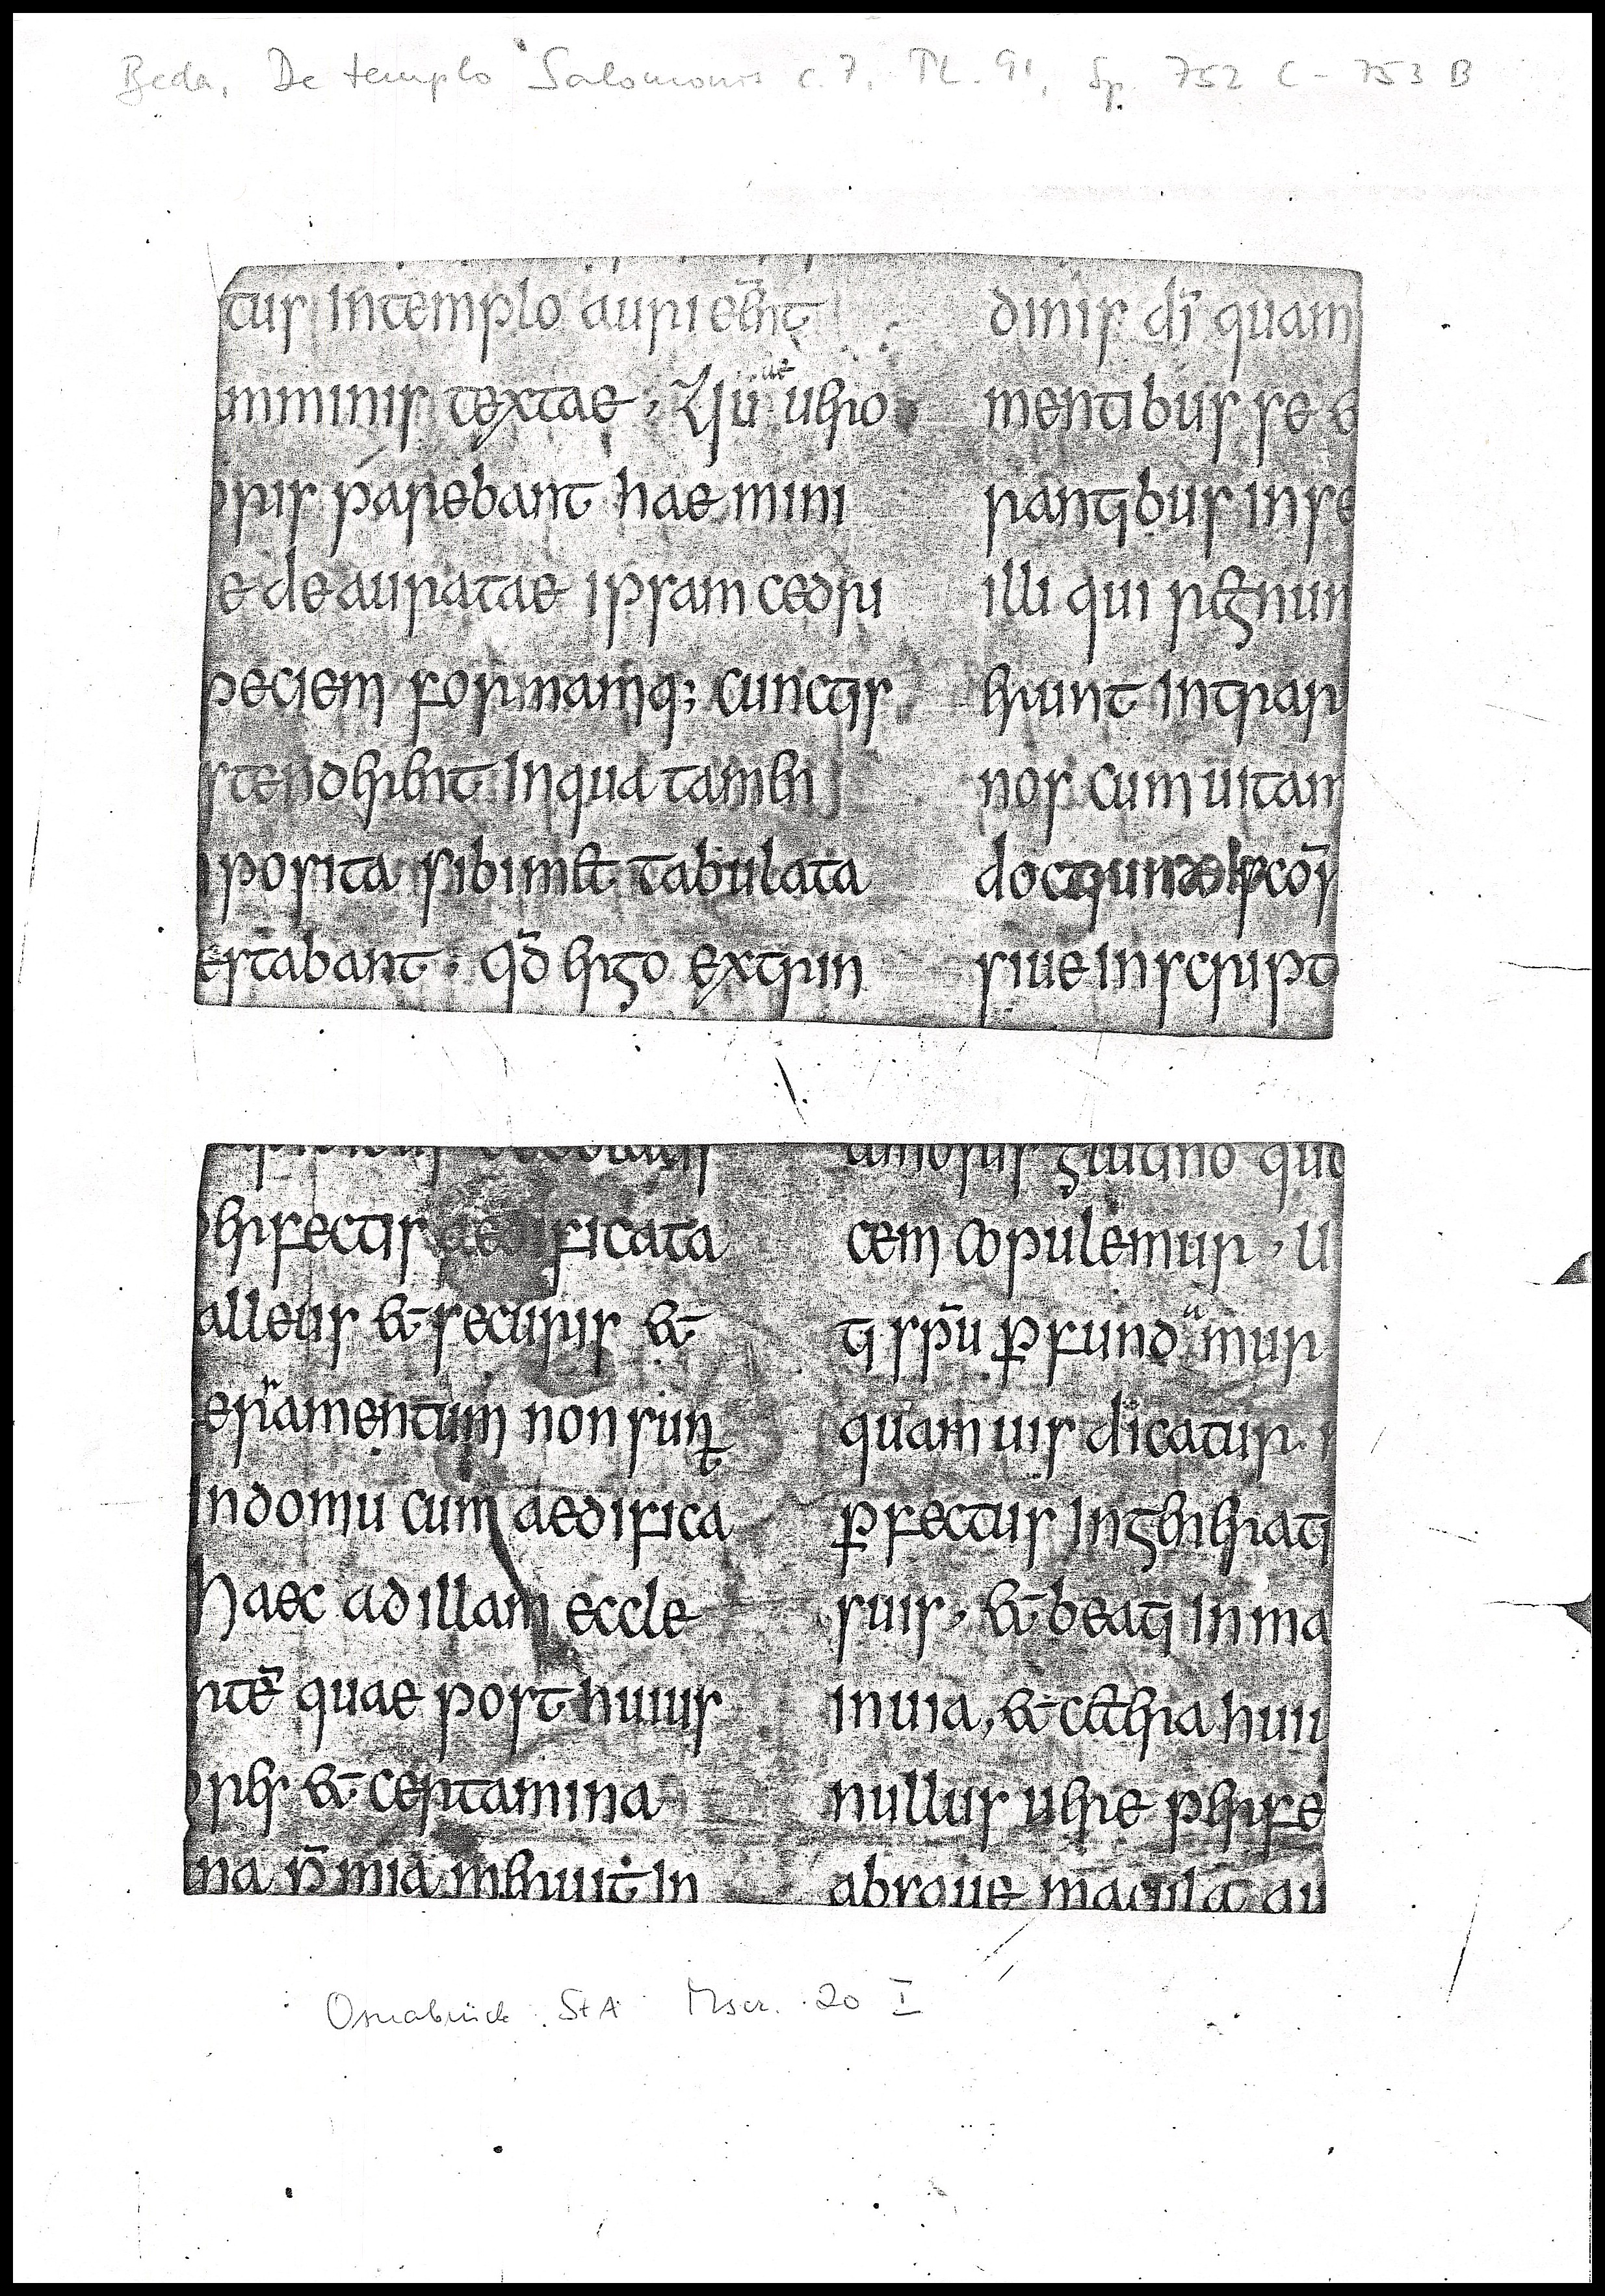 Beda, De templo Salomonis c. 7, PL. 91, Sp. 752 C - 753 B
tus in templo auri erant
amminis textae, Quae uero
oris parebant hae mini
e deauratae ipsam cedri
peciem formamq; cunctis
stenderent in qua tamen
posita sibimet tabulata
estabant. qd ergo extrin
dinis di quam
mentibus se
rantibus in se
illi qui regnum
erunt intrar
nos cum uitam
siue in script
perfectis aedificata
alleus et securis et
erramentum non sunt
in domu cum aedifica
haec ad illam eccle
quae post huius
et certamina
na mia meruit in
cem copulemur, U
ti spu perfundamur
quam uis dicatur
perfectus in
suis, et beati in ma
in uia, et cetera huii
nullus uere perfe
absque macula au
Osnabrück StA Mscr. 20 I